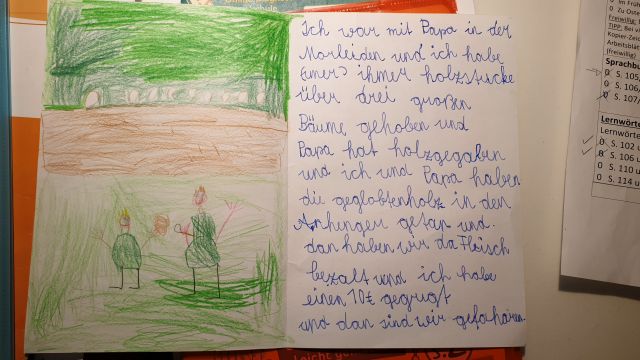 Ich war mit Papa in der
Morleiden und ich habe
Emer ihmer holzstücke
über drei großen
Bäume gehoben und
Papa hat holzgegaben
und ich und Papa haben
die geglobtenholz in den
Anhenger getan und.
dan haben wir da Fleisch
bezalt und ich habe
einen 10€ gegrugt
und dan sind wir gefahren.
0 Im Früh
0 Zu Oste
Freiwillig:
TIPP: Bei
Kopier-Zeic
Arbeitsblat
(freiwillig)
Sprachbu
0 S. 105
0 S. 106
0 S. 107
Lernwörte
Lernwörter
0 S. 102 u
0 S. 106 u
0 S. 110 u
0 S. 114 u